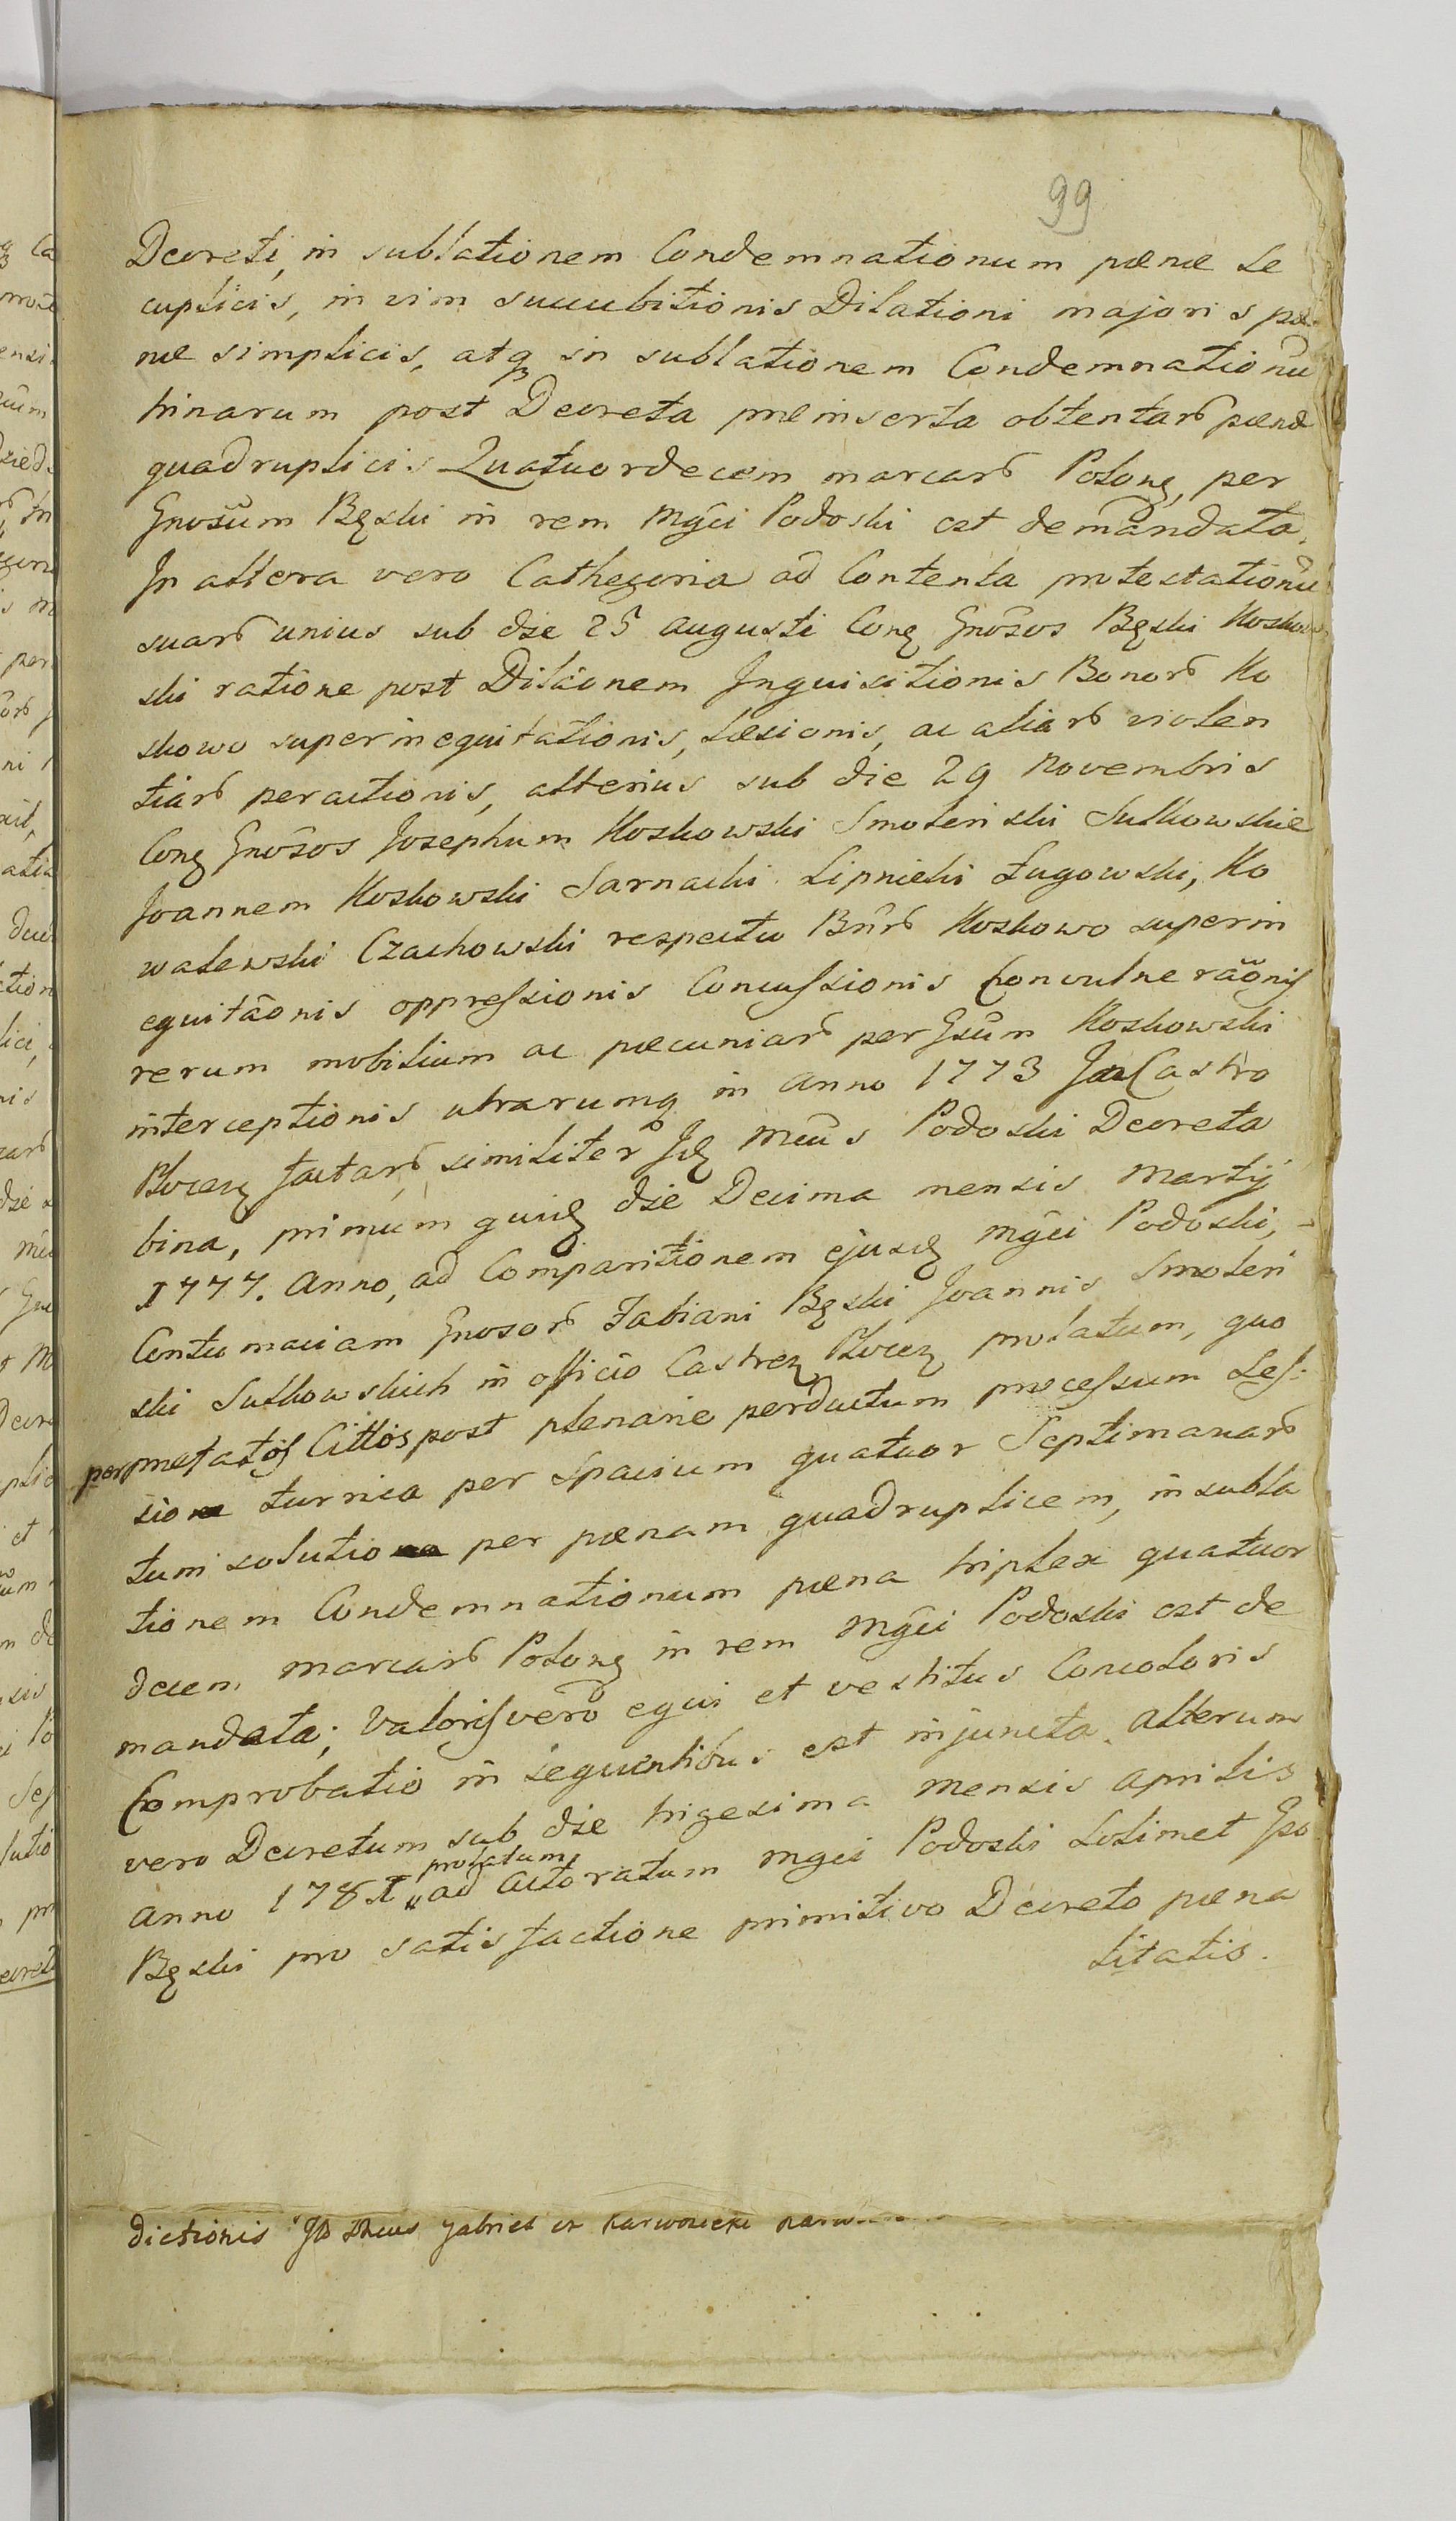 99
Decreti, in sublationem Condemnationum pœnæ se
cuplicis, in vim succubitionis Dilationi majoris pœ
næ simplicis, atq₃ in sublationem Condemnationũ
trinarum post Decreta præinserta obtentarũ pœnæ
quadruplicis Quatuordecem marcarũ Polonę, per
Gnosũm Bęski in rem Mgci Podoski est demandata.
In altera vero Cathegoria ad Contenta protestationũ
suarũ unius sub die 25 augusti Conę Gnõsos Bęski Koskow
ski ratione post Dilãonem Inquisitionis Bonorũ Ko
skowo superinequitationis, Læsionis, ac aliarũ violen
tiarũ peractionis, alterius sub die 29 novembris
Conę Gnõsos Josephum Koskowski Smoleński Sutkowskie
Joannem Koskowski Sarnacki Lipnicki Ługowski, Ko
walewski Czachowski respectu Bnrũ Koskowo superin
equitãonis oppressionis Concussionis Convulnerãonis
rerum mobilium ac pœcuniarũ per Gsũm Koskowski
interceptionis utrarumq₃ in anno 1773 In Castro
Plocen factarũ, similiter Idę Mcũs Podoski Decreta
bina, primum quidę die Decima mensis Martij
1777. anno, ad Comparitionem ejusdę Mgci Podoski,
Contumaciam Gnosorũ Fabiani Bęski Joannis Smoleń
ski Sutkowskich in officio Castren Plocen prolatum, quo
per præfatos Cittos post plenarie perductum processum Ses:
sio turrica per Spacium quatuor Septimanarũ
tum solutio per pœnam quadruplicem, in subla
tionem Condemnationum pœna triplex quatuor
decem marcarũ Polonę in rem Mgci Podoski est de
mandata; Valoris vero equi et vestitus Concoloris
Comprobatio in sequentibus est injuncta. Alterum
vero Decretum sub die trigesima mensis Aprilis
prolatum
anno 178 ad Actoratum Mgci Podoski Solimet Gso
Bęski pro satisfactione primitivo Decreto pœna
litatis.
dictionis Gabriel Karwosiecki